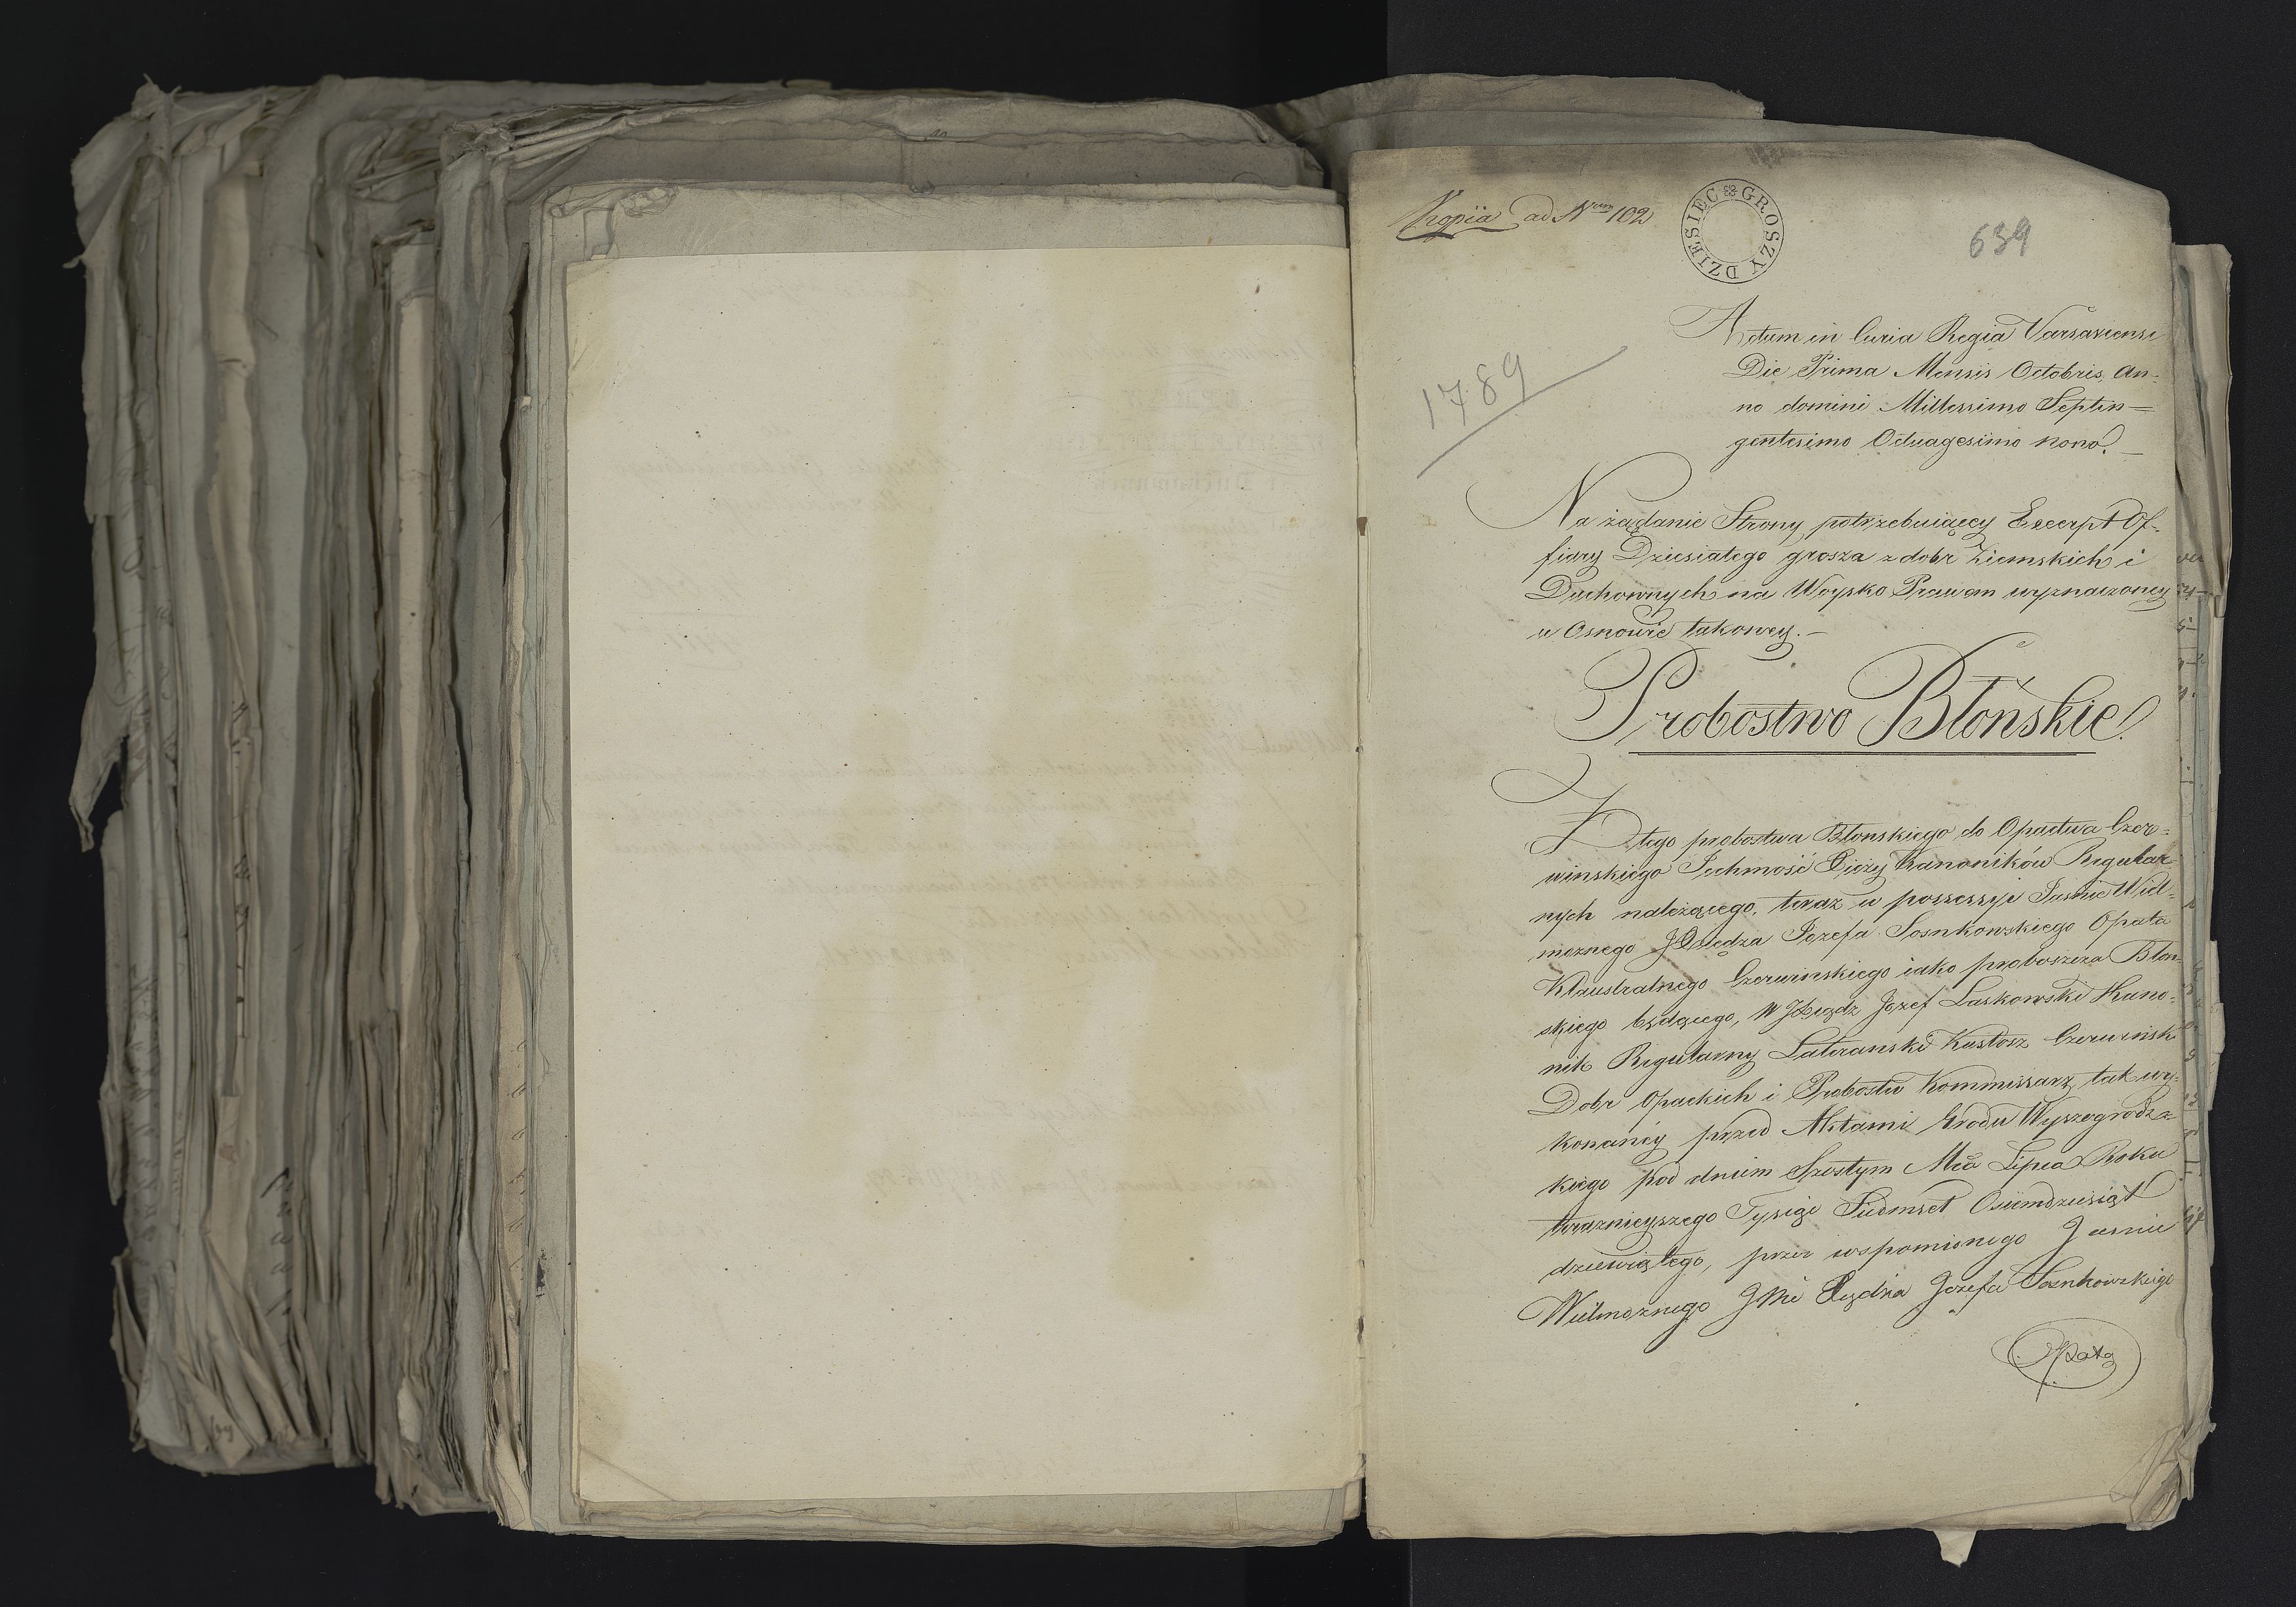 Kopiia ad Nrum 102
DZIESIEC GROSZY
639
1789
Actum in Curia Regia Varsaviensi
Die Prima Mensis Octobris, an-
no domini Millessimo Septin=
gentesimo Octuagesimo nono. —
Na żądanie Strony potrzebuiącey Excerpt Of-
fiary Dziesiątego grosza z dobr Ziemskich i
Duchownych na Woysko Prawem wyznaczoney
w Osnowie takowey. —
Probostwo Błońskie.
Z tego probostwa Błonskiego do Opactwa Czer=
winskiego Ichmość Xięży Kanoników Regular-
nych należącego, teraz w possessyi Jasnie Wiel-
moznego JXiędza Jozefa Sosnkowskiego Opata
Klaustralnego Czerwinskiego iako proboszcza Błon-
skiego będącego, W JXiądz Jozef Laskowski Kano-
nik Regularny Lateranski Kustosz Czerwinsk
Dobr Opackich i Probostw Kommissarz, tak wy-
konaney przed Aktami Grodu Wyszogrodz=
kiego pod dniem Szostym Mca Lipca Roku
teraznieyszego Tysiąc Siedmset Osiemdziesiąt
dziewiątego, przez wspomionego Jasnie
Wielmoznego JMć Xiędza Jozefa Sosnkowskiego
Opata